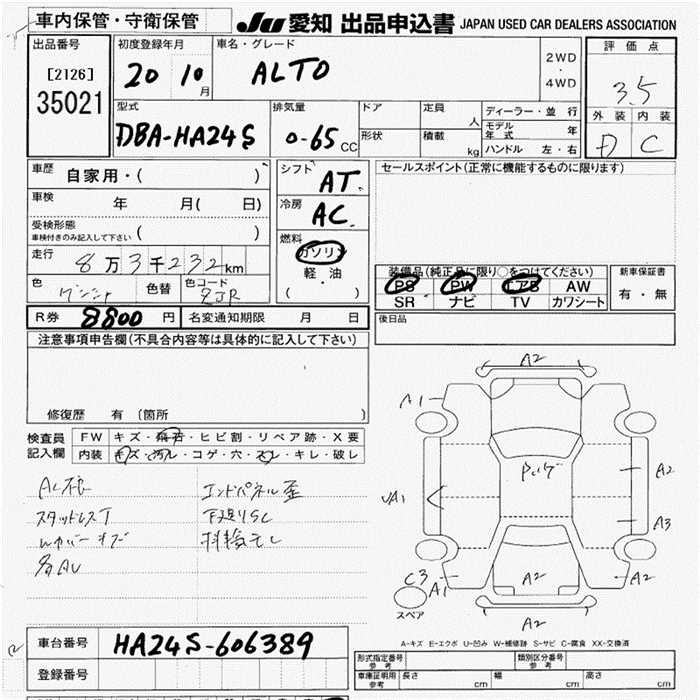 車内保管・守衛保管
JU 愛知 出品申込書 JAPAN USED CAR DEALERS ASSOCIATION
出品番号
[2126]
35021
初度登録年月
20 10月
車名・グレード
ALTO
2WD
・
4WD
評価点
3.5
外装 内装
D C
型式
DBA-HA24S
排気量
0-65 CC
ドア
形状
定員 人
積載 kg
ディーラー・並行
モデル年式 年
ハンドル 左・右
車歴 自家用・( )
車検 年 月( 日)
受検形態
車検付きのみ記入して下さい ( )
走行 8万3千232km
色
色替
色コード
ZJR
シフト AT.
冷房 AC.
燃料
ガソリン
軽・油
( )
セールスポイント(正常に機能するものに限ります)
装備品(純正品に限り○をつけてください)
PS PW エアB AW
SR ナビ TV カワシート
新車保証書
有・無
R券 8800円
名変通知期限 月 日
後日品
注意事項申告欄(不具合内容等は具体的に記入して下さい)
修復歴 有 (箇所 )
検査員
記入欄
FW キズ・飛石・ヒビ割・リペア跡・X要
内装 キズ・汚レ・コゲ・穴・スレ・キレ・破レ
エンドパネル歪
スタッドレスT
下廻りSC
A2
A1
A2
A1
A3
C3
A1
A2
A2
A2
スペア
A-キズ E-エクボ U-凹み W-補修跡 S-サビ C-腐食 XX-交換済
車台番号 HA24S-606389
登録番号
形式指定番号
参考
類別区分番号
参考
車庫証明用
参考
長さ cm
幅 cm
高さ cm